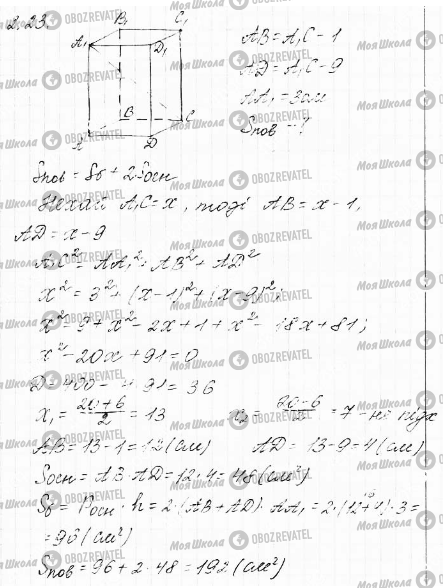 2.23.
B₁ C₁
A₁ D₁
B C
A D
AB = A₁C - 1
AD = A₁C - 9
AA₁ = 3см
Sпов - ?
Sпов = Sб + 2Sосн
Нехай A₁C = x, тоді AB = x - 1,
AD = x - 9
A₁C² = AA₁² + AB² + AD²
x² = 3² + (x-1)² + (x-9)²;
x² = 9 + x² - 2x + 1 + x² - 18x + 81;
x² - 20x + 91 = 0
D = 400 - 4·91 = 36
x₁ = (20+6)/2 = 13 x₂ = (20-6)/2 = 7 - не підх
AB = 13 - 1 = 12 (см) AD = 13 - 9 = 4 (см)
Sосн = AB · AD = 12 · 4 = 48 (см²)
Sб = Pосн · h = 2 · (AB + AD) · AA₁ = 2 · (12 + 4) · 3 =
= 96 (см²)
Sпов = 96 + 2 · 48 = 192 (см²)
Моя Школа OBOZREVATEL